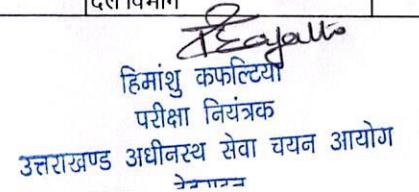 दल विभाग
हिमांशु कफल्टिया
परीक्षा नियंत्रक
उत्तराखण्ड अधीनस्थ सेवा चयन आयोग